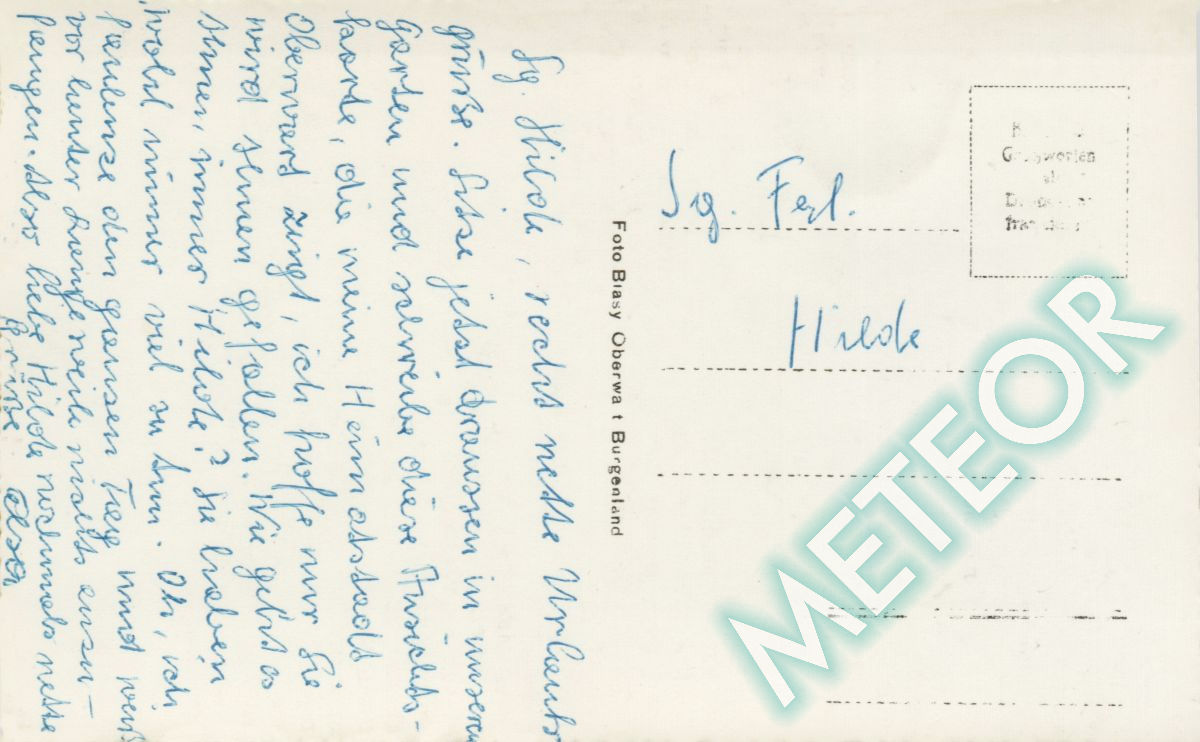 Sg. Hilde, recht nette Urlaubs
grüße. Sitze jetzt draussen in unserem
Garten und schreibe diese Ansichts-
karte, die meine Heimatstadt
Oberwart zeigt, ich hoffe nur Sie
wird Ihnen gefallen. Wie geht es
Ihnen, immer Hilde? Sie haben
wohl immer viel zu tun. Oh, ich
faulenze den ganzen Tag und weiß
vor lauter Langeweile nichts anzu-
fangen. Also liebe Hilde nochmals nette
Grüße
Foto Blasy Oberwa t Burgenland
Sg. Frl.
Hilde
METEOR